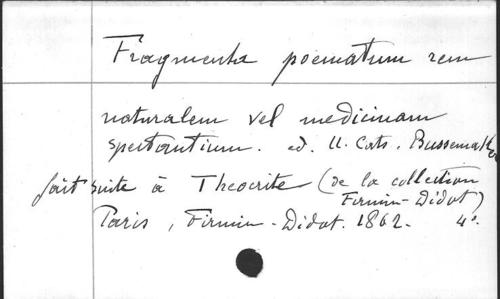 Fragmenta poematum rem
naturalem vel medicinam
spectantium. ed. U. Cats. Bussemaker
fait suite à Theocrite (de la collection
Firmin-Didot)
Paris, Firmin-Didot. 1862. 4°.